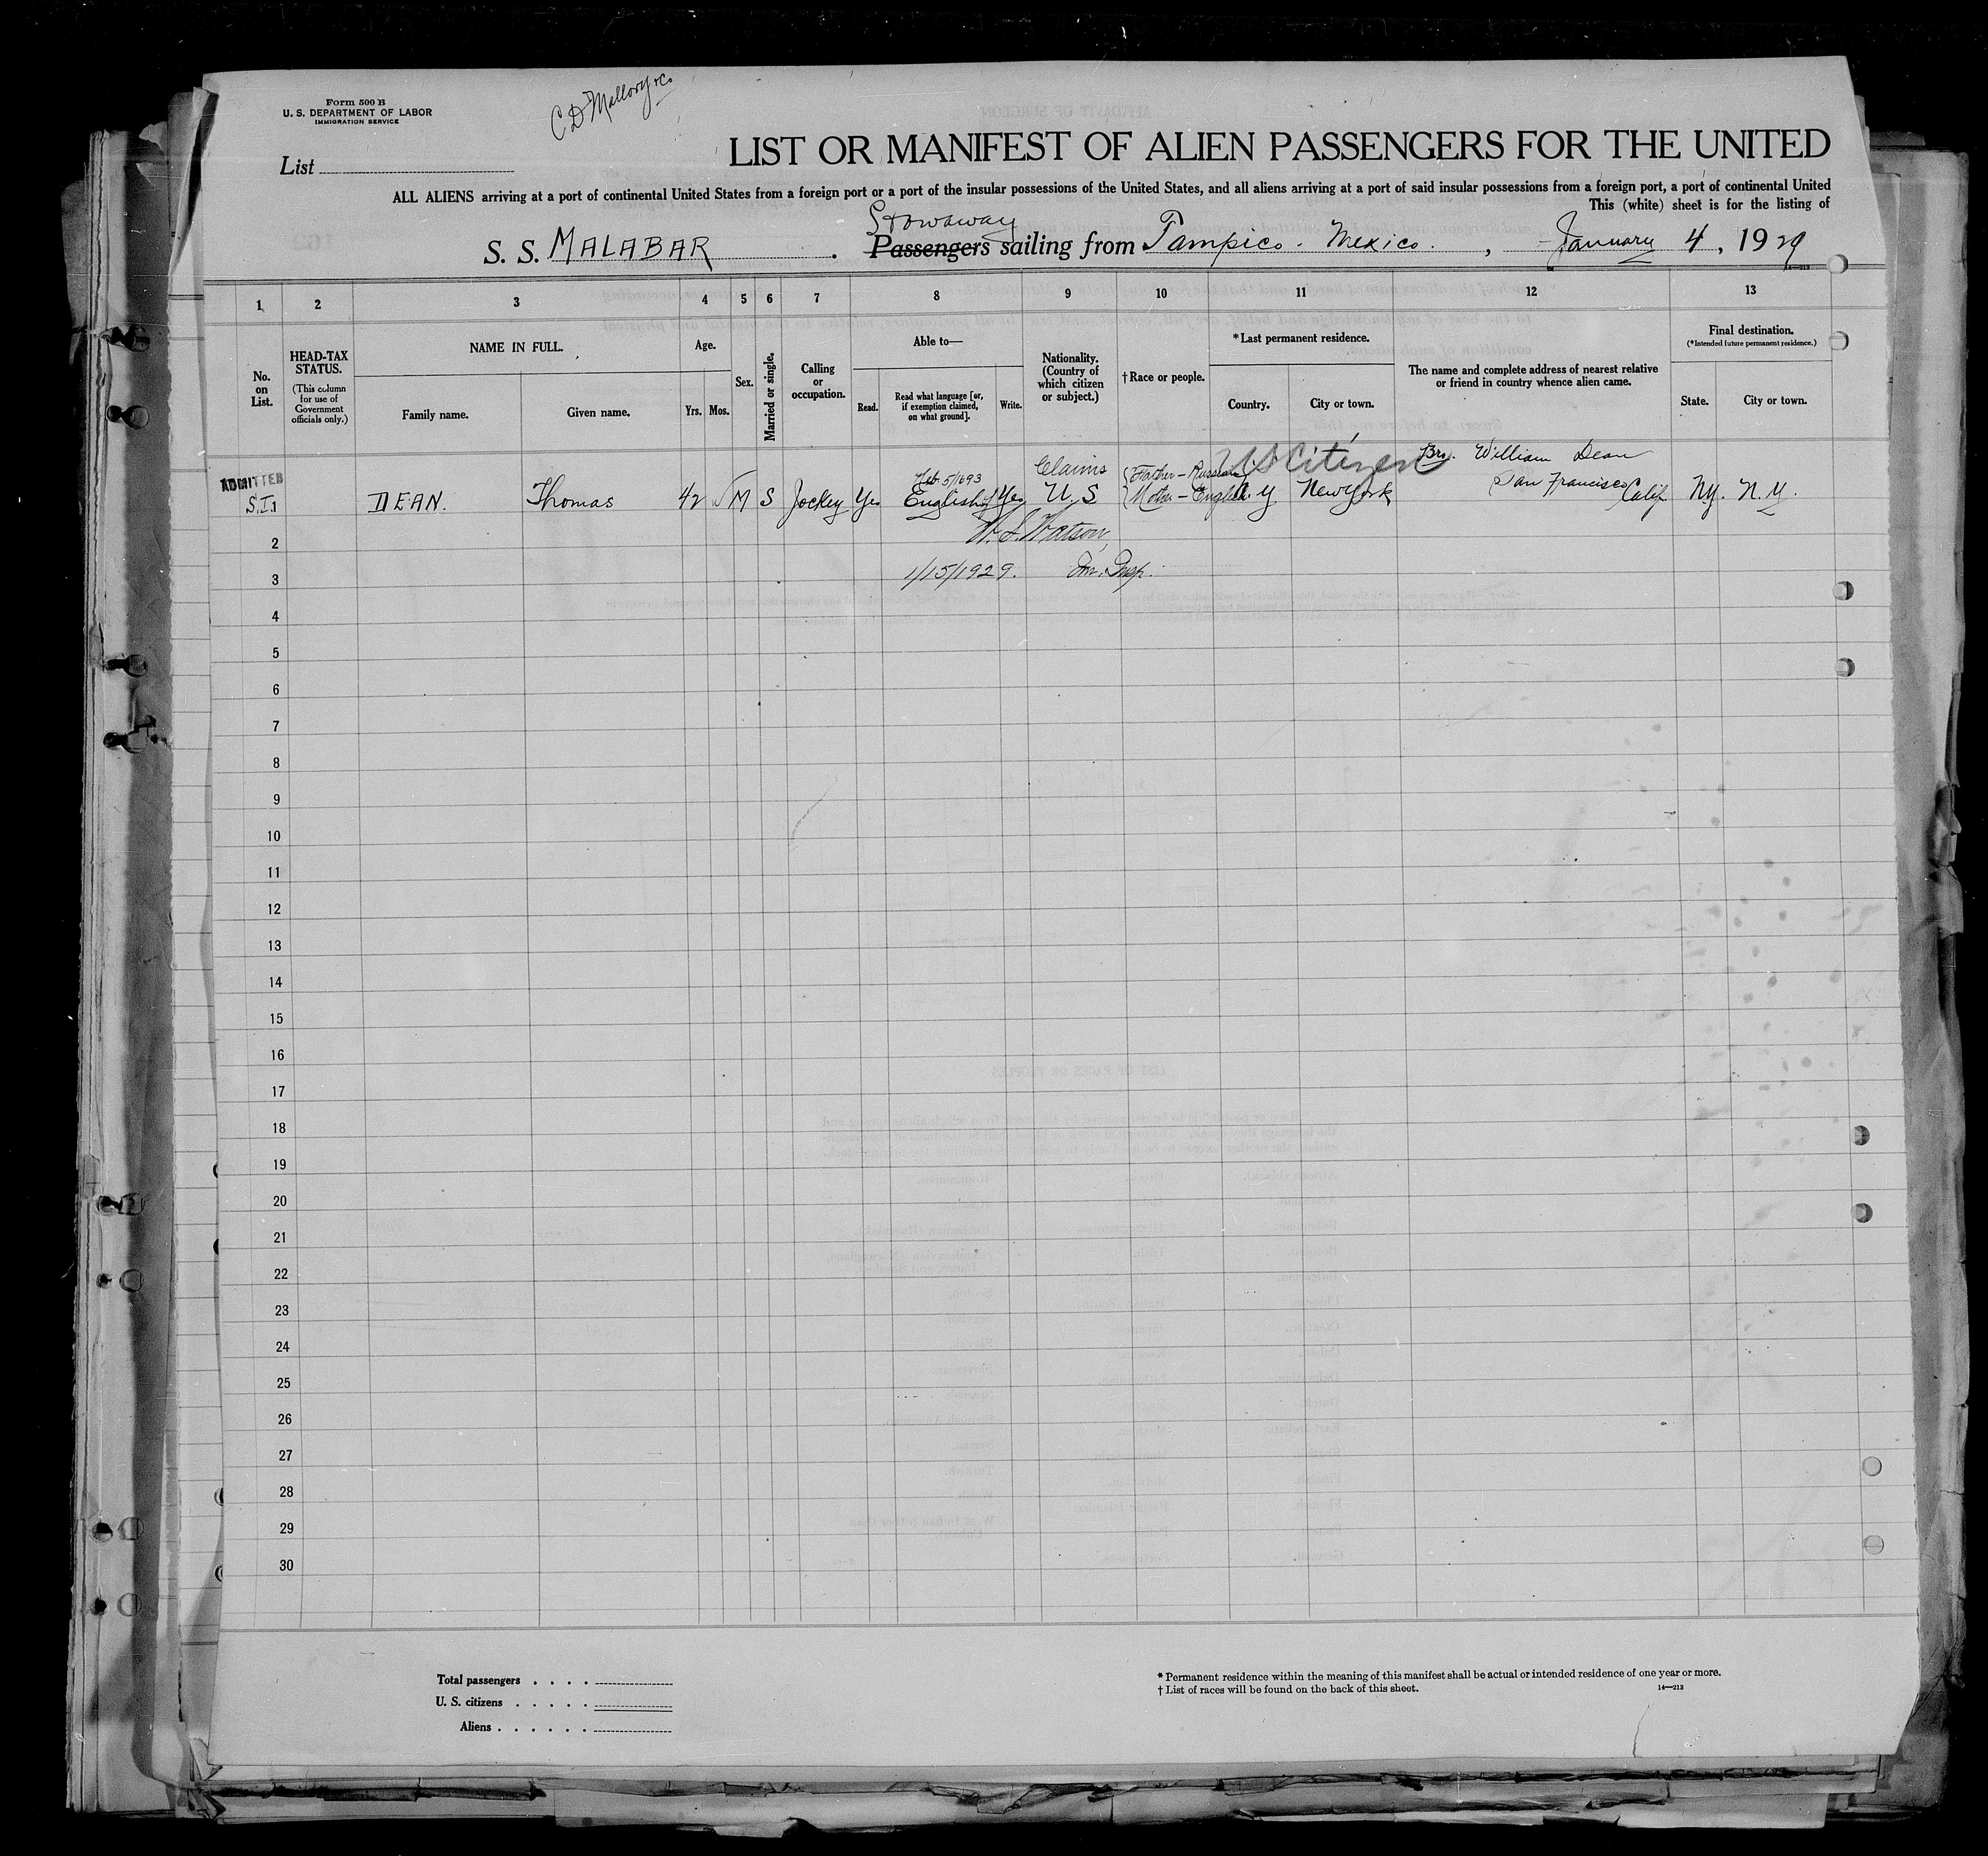 Form 500 B
U. S. DEPARTMENT OF LABOR
IMMIGRATION SERVICE
C D Mallory & Co
List
LIST OR MANIFEST OF ALIEN PASSENGERS FOR THE UNITED
ALL ALIENS arriving at a port of continental United States from a foreign port or a port of the insular possessions of the United States, and all aliens arriving at a port of said insular possessions from a foreign port, a port of continental United
This (white) sheet is for the listing of
Stowaway
S. S. MALABAR. Passengers sailing from Tampico - Mexico. , January 4, 1929
14—213
1 2 3 4 5 6 7 8 9 10 11 12 13
No. on List.
HEAD-TAX STATUS.
(This column for use of Government officials only.)
NAME IN FULL.
Family name. Given name.
Age.
Yrs. Mos.
Sex.
Married or single.
Calling or occupation.
Able to—
Read. Read what language [or, if exemption claimed, on what ground]. Write.
Nationality. (Country of which citizen or subject.)
†Race or people.
*Last permanent residence.
Country. City or town.
The name and complete address of nearest relative or friend in country whence alien came.
Final destination.
(*Intended future permanent residence.)
State. City or town.
ADMITTED Claims Father - Russian US Citizen Bro. William Dean
S.I. 1 DEAN. Thomas 42 M S Jockey Yes English Yes U. S Mother - English N. Y. New York San Francisco Calif. N.Y. N. Y.
2 Watson
3 1/15/1929. Im. Insp.
4
5
6
7
8
9
10
11
12
13
14
15
16
17
18
19
20
21
22
23
24
25
26
27
28
29
30
Total passengers . . . .
U. S. citizens . . . . .
Aliens . . . . . .
* Permanent residence within the meaning of this manifest shall be actual or intended residence of one year or more.
† List of races will be found on the back of this sheet.
14—213